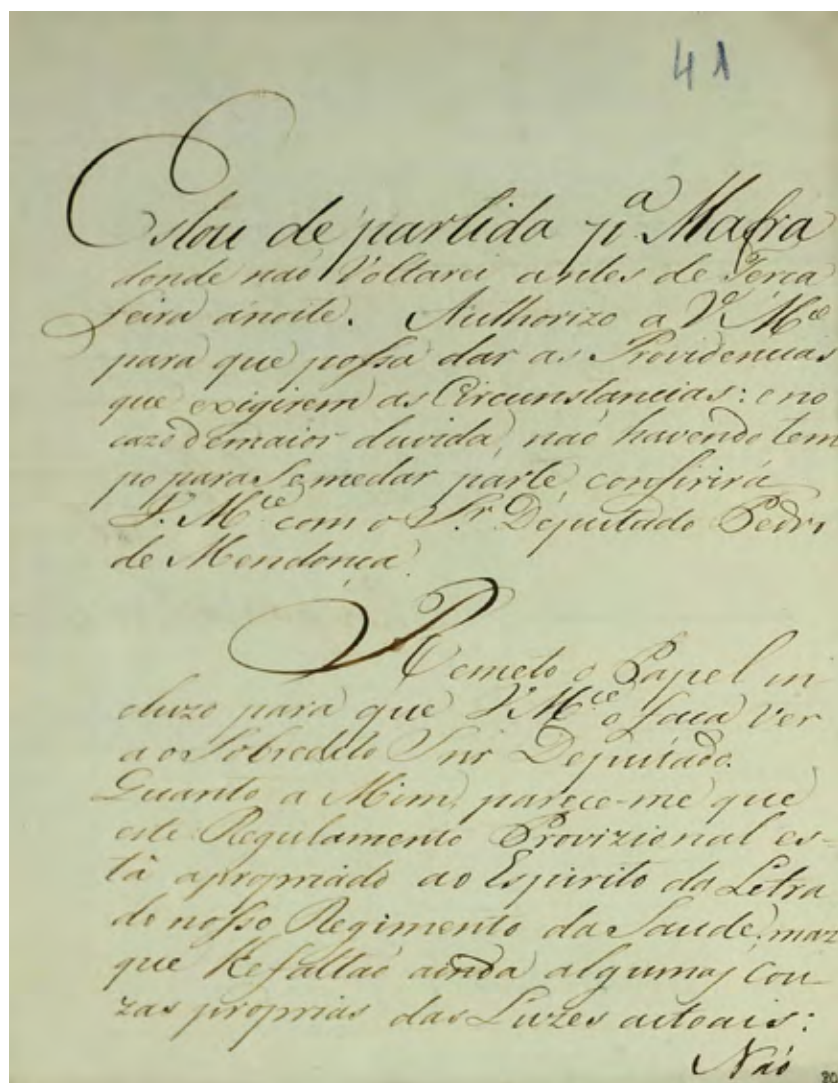 41
Estou de partida pª Mafra
donde naõ Voltarei antes de Terca
feira ánoite. Authorizo a V Mce
para que possa dar as Providencias
que exigirem as Circunstancias: e no
cazo demaior duvida, naõ havendo tem
po para Semedar parte confirirá
V. Mce com o Sr Deputado Pedro
de Mendonca.
Remeto o Papel in-
cluzo para que V Mce o faca ver
ao Sobredito Snr Deputado.
Quanto a Mim, parece-me que
este Regulamento Provizional es-
tá apropriado ao Espirito da Letra
do nosso Regimento da Saude, maz
que lhe faltaõ ainda algumas Cou-
zas proprias das Luzes actoais:
Naõ